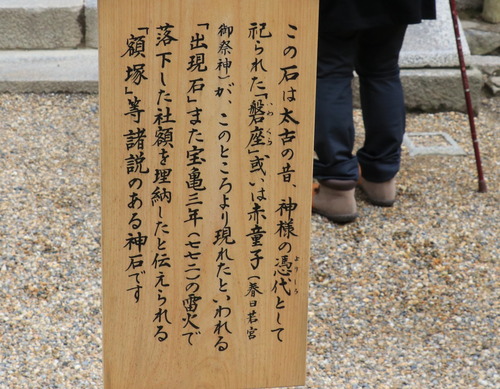 この石は太古の昔、神様の憑代として
祀られた「磐座」或いは赤童子（春日若宮
御祭神）が、このところより現れたといわれる
「出現石」また宝亀三年（七七二）の雷火で
落下した社額を埋納したと伝えられる
「額塚」等諸説のある神石です
よりしろ
いわくら